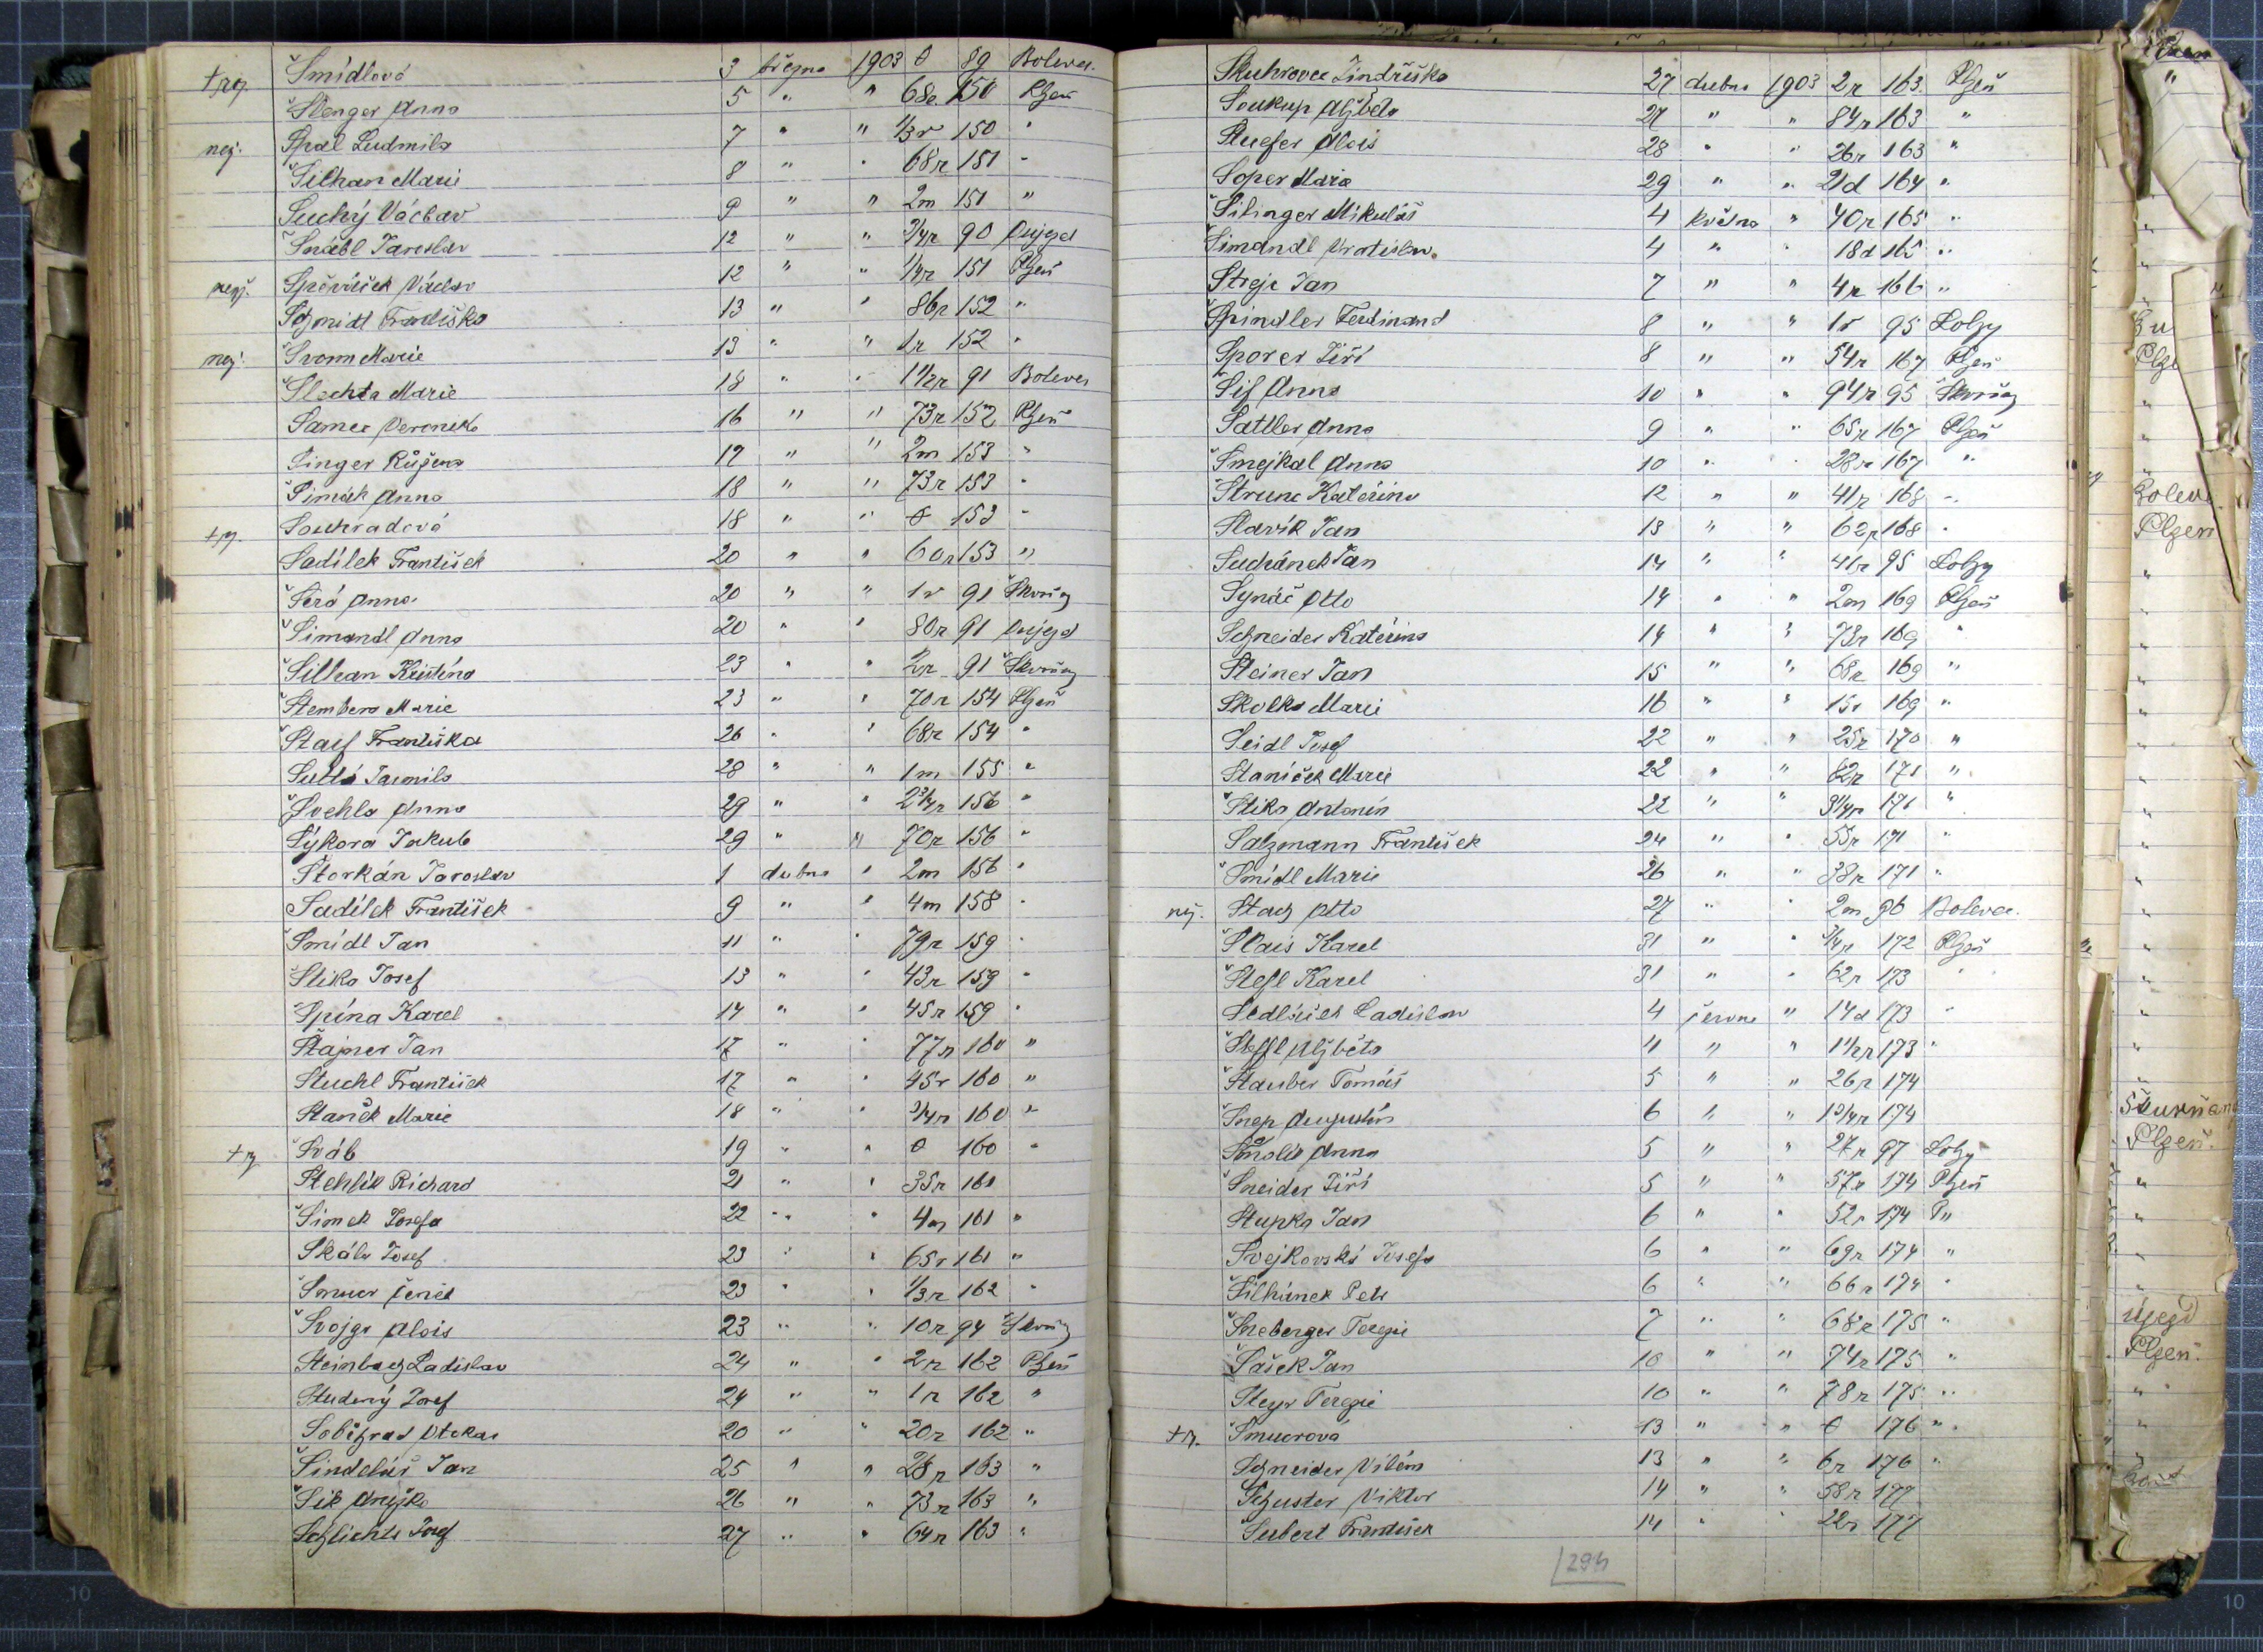 Šmídlová 3 března 1903 0 89 Bolevec
Slenger Anna 5 " " 68r 150 Plzeň
nej. Spal Ludmila 7 " " 1/3r 150 "
Šilhan Marie 8 " " 68r 151 "
Suchý Václav 9 " " 2m 151 "
Šnábl Jaroslav 12 " " 3/4r 90 Oujezd
Spěváček Václav 12 " " 1/4r 151 Plzeň
Schmidt Františka 13 " " 86r 152 "
nej. Marie 13 " " 1r 152 "
Šlechta Marie 18 " " 1 1/2r 91 Bolevec
Samec Veronika 16 " " 73r 152 Plzeň
Singer Růžena 17 " " 2m 153 "
Šimák Anna 18 " " 73r 153 "
Souhradová 18 " " 0 153 "
Sadílek František 20 " " 60r 153 "
Šerá Anna 20 " " 1r 91
Šimandl Anna 20 " " 80r 91 Oujezd
Šilhan Kristina 23 " " 91
Štembera Marie 23 " " 70r 154 Plzeň
Staif Františka 26 " " 68r 154 "
Jarmila 28 " " 1m 155 "
Švehla Anna 29 " " 2 3/4r 156 "
Sýkora Jakub 29 " " 70r 156 "
Štorkán Jaroslav 1 dubna " 2m 156 "
Sadílek František 9 " " 4m 158 "
Šmídl Jan 11 " " 79r 159 "
Stika Josef 13 " " 43r 159 "
Špína Karel 14 " " 45r 159 "
Štajner Jan 17 " " 77r 160 "
Stuchl František 17 " " 45r 160 "
Staněk Marie 18 " " 3/4r 160 "
Šváb 19 " " 0 160 "
Stehlík Richard 21 " " 35r 161
Šimek Josefa 22 " " 4m 161 "
Skála Josef 23 " " 65r 161 "
Čeněk 23 " " 1/3r 162 "
Švojgr Alois 23 " " 10r 94
Steinbach Ladislav 24 " " 2r 162 Plzeň
Studený Josef 24 " " 1r 162 "
Soběhrad Otokar 20 " " 20r 162 "
Šindelář Jan 25 " " 28r 163 "
Šik 26 " " 73r 163 "
Schlichts Josef 27 " " 64r 163 "
Skuhrovec Jindřiška 27 dubna 1903 2r 163 Plzeň
Soukup Alžběta 27 " " 84r 163 "
Stuefer Alois 28 " " 26r 163 "
Soper Marie 29 " " 21d 164 "
Silinger Mikuláš 4 května " 40r 165 "
Šimandl Vratislav 4 " " 18d 165 "
Steje Jan 7 " " 4r 166 "
Špindler Ferdinand 8 " " 1r 95 Lobzy
Sporer Jiří 8 " " 54r 167 Plzeň
Anna 10 " " 94r 95
Sattler Anna 9 " " 65r 167 Plzeň
Smejkal Anna 10 " " 28r 167 "
Strunc Kateřina 12 " " 41r 168 "
Slavík Jan 13 " " 62r 168 "
Suchánek Jan 14 " " 41r 95 Lobzy
Synáč Otto 14 " " 2m 169 Plzeň
Schneider Kateřina 14 " " 73r 169 "
Steiner Jan 15 " " 68r 169 "
Skolka Marie 16 " " 15r 169 "
Seidl Josef 22 " " 25r 170 "
Staníček Marie 22 " " 82r 171 "
Stika Antonín 22 " " 3 1/4r 171 "
Salzmann František 24 " " 55r 171 "
Šmídl Marie 26 " " 38r 171 "
nej. Stach Otto 27 " " 2m 96 Bolevec
Šlais Karel 31 " " 3/4r 172 Plzeň
Štefl Karel 31 " " 62r 173 "
Sedláček Ladislav 4 června " 14d 173 "
Šteffl Alžběta 4 " " 1 1/2r 173 "
Stauber Tomáš 5 " " 26r 174
Augustin 6 " " 1 3/4r 174
Anna 5 " " 27r 97 Lobzy
Šneider Jiří 5 " " 57r 174 Plzeň
Stupka Jan 6 " " 52r 174
Svejkovská Josefa 6 " " 69r 174 "
Šilhánek Petr 6 " " 66r 174 "
Šneberger Terezie 7 " " 68r 175 "
Šašek Jan 10 " " 74r 175 "
Steyr Terezie 10 " " 78r 175 "
Šmucrová 13 " " 0 176 "
Schneider Vilém 13 " " 6r 176 "
Schuster Viktor 14 " " 58r 177
Šubert František 14 " " 22r 177
294
Plzen
Plzeň.
Újezd
Plzeň.